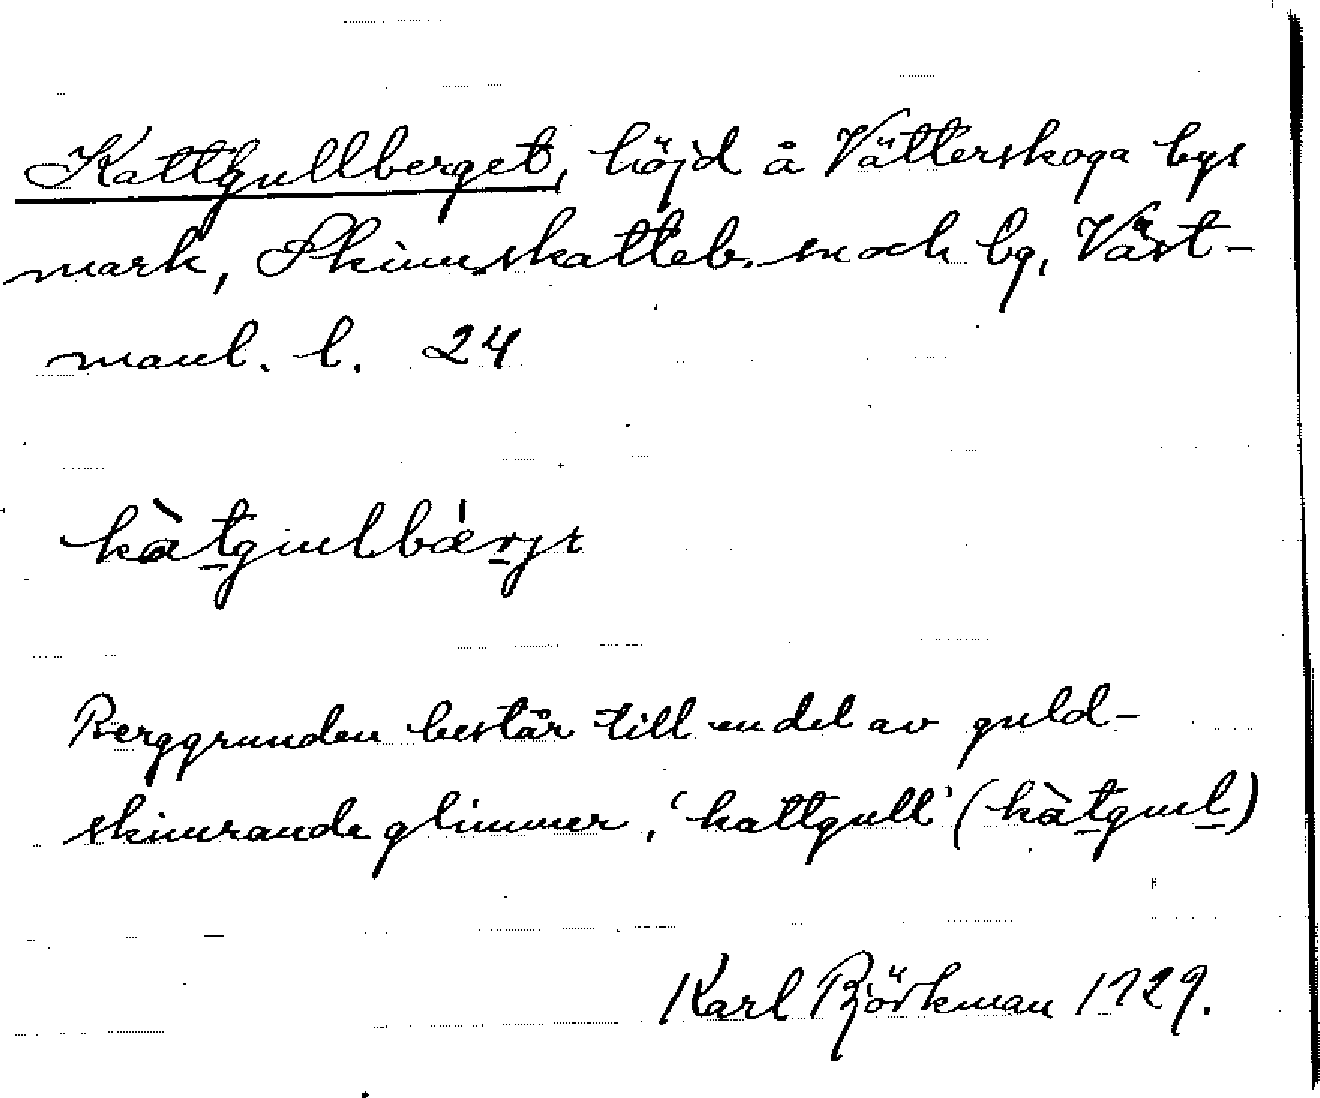 Kattgullberget, höjd å Vätterskoga bys
mark, Skinnskatteb. sn och bg, Väst-
manl. l. 24
kàtgullbærjt
Berggrunden består till en del av guld-
skimrande glimmer, 'kattgull' (kàtgul)
Karl Björkman 1929.